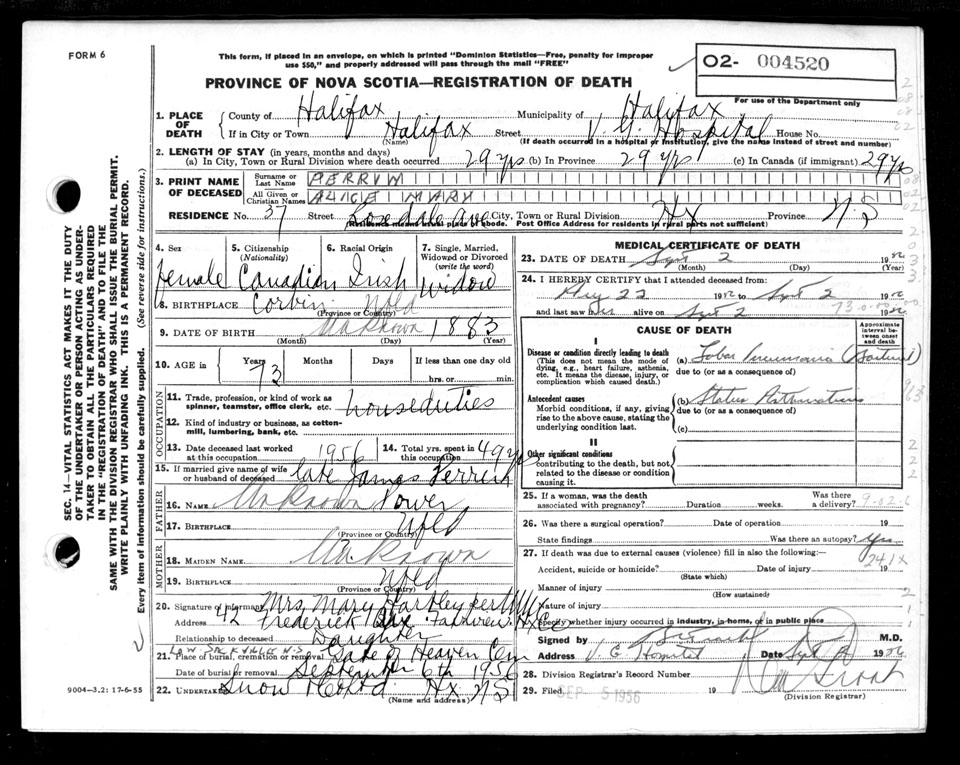 FORM 6
This form, if placed in an envelope, on which is printed "Dominion Statistics—Free, penalty for improper
use $50," and properly addressed will pass through the mail "FREE"
PROVINCE OF NOVA SCOTIA—REGISTRATION OF DEATH
02- 004520
For use of the Department only
1. PLACE OF DEATH { County of Halifax Municipality of Halifax
If in City or Town Halifax Street V. G. Hospital House No.
(Name) (If death occurred in a hospital or institution, give the name instead of street and number)
2. LENGTH OF STAY (in years, months and days)
(a) In City, Town or Rural Division where death occurred 29 yrs (b) In Province 29 yrs (c) In Canada (if immigrant) 29 yrs
3. PRINT NAME OF DECEASED { Surname or Last Name PERRIN
All Given or Christian Names ALICE MARY
RESIDENCE No. 37 Street Ave City, Town or Rural Division Hx Province N S
(Residence means usual place of abode. Post Office Address for residents in rural parts not sufficient)
4. Sex female
5. Citizenship (Nationality) Canadian
6. Racial Origin Irish
7. Single, Married, Widowed or Divorced (write the word) Widow
8. BIRTHPLACE Corbin Nfld
(Province or Country)
9. DATE OF BIRTH Unknown 1883
(Month) (Day) (Year)
10. AGE in Years 73 Months Days If less than one day old
hrs. or min.
11. Trade, profession, or kind of work as
spinner, teamster, office clerk, etc. houseduties
12. Kind of industry or business, as cotton-
mill, lumbering, bank, etc.
13. Date deceased last worked
at this occupation 1956
14. Total yrs. spent in
this occupation 49 yrs
15. If married give name of wife
or husband of deceased late James Perrin
FATHER
16. NAME Unknown Power
17. BIRTHPLACE Nfld
MOTHER
18. MAIDEN NAME Unknown
19. BIRTHPLACE Nfld
(Province or Country)
20. Signature of informant Mrs Mary Hartley per
Address 42 Frederick Ave Fairview Hx Co
Relationship to deceased Daughter
LOW. SACKVILLE N.S.
21. Place of burial, cremation or removal Gate of Heaven Cem
Date of burial or removal September 6th 1956
22. UNDERTAKER Snow Hx N S
(Name and address)
MEDICAL CERTIFICATE OF DEATH
23. DATE OF DEATH Sept 2 1956
(Month) (Day) (Year)
24. I HEREBY CERTIFY that I attended deceased from:
Aug 22 1956 to Sept 2 1956
and last saw her alive on Sept 2 1956
CAUSE OF DEATH
Approximate interval between onset and death
I
Disease or condition directly leading to death
(This does not mean the mode of dying, e.g., heart failure, asthenia, etc. It means the disease, injury, or complication which caused death.)
(a) Lobar Pneumonia
due to (or as a consequence of)
Antecedent causes
Morbid conditions, if any, giving rise to the above cause, stating the underlying condition last.
(b) Status Asthmaticus
due to (or as a consequence of)
(c)
II
Other significant conditions
contributing to the death, but not related to the disease or condition causing it.
25. If a woman, was the death
associated with pregnancy? Duration weeks. Was there a delivery?
26. Was there a surgical operation? Date of operation 19
State findings Was there an autopsy? Yes
27. If death was due to external causes (violence) fill in also the following: 241X
Accident, suicide or homicide? Date of injury 19
(State which)
Manner of injury
(How sustained)
Nature of injury
Specify whether injury occurred in industry, in home, or in public place
Signed by M.D.
Address V. G. Hospital Date Sept 1956
28. Division Registrar's Record Number
29. Filed SEP 5 1956 19
(Division Registrar)
9004-3.2: 17-6-55
SEC. 14—VITAL STATISTICS ACT MAKES IT THE DUTY
OF THE UNDERTAKER OR PERSON ACTING AS UNDER-
TAKER TO OBTAIN ALL THE PARTICULARS REQUIRED
IN THE "REGISTRATION OF DEATH" AND TO FILE THE
SAME WITH THE DIVISION REGISTRAR WHO SHALL ISSUE THE BURIAL PERMIT.
WRITE PLAINLY WITH UNFADING INK—THIS IS A PERMANENT RECORD.
Every item of information should be carefully supplied. (See reverse side for instructions.)